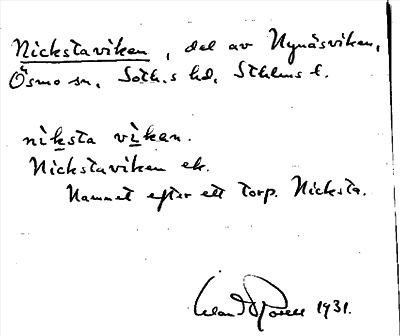 Nickstaviken, del av Nynäsviken,
Ösmo sn, Soth.s hd, Sthlms l.
niksta vikan.
Nickstaviken ek.
Namnet efter ett torp. Nicksta.
1931.